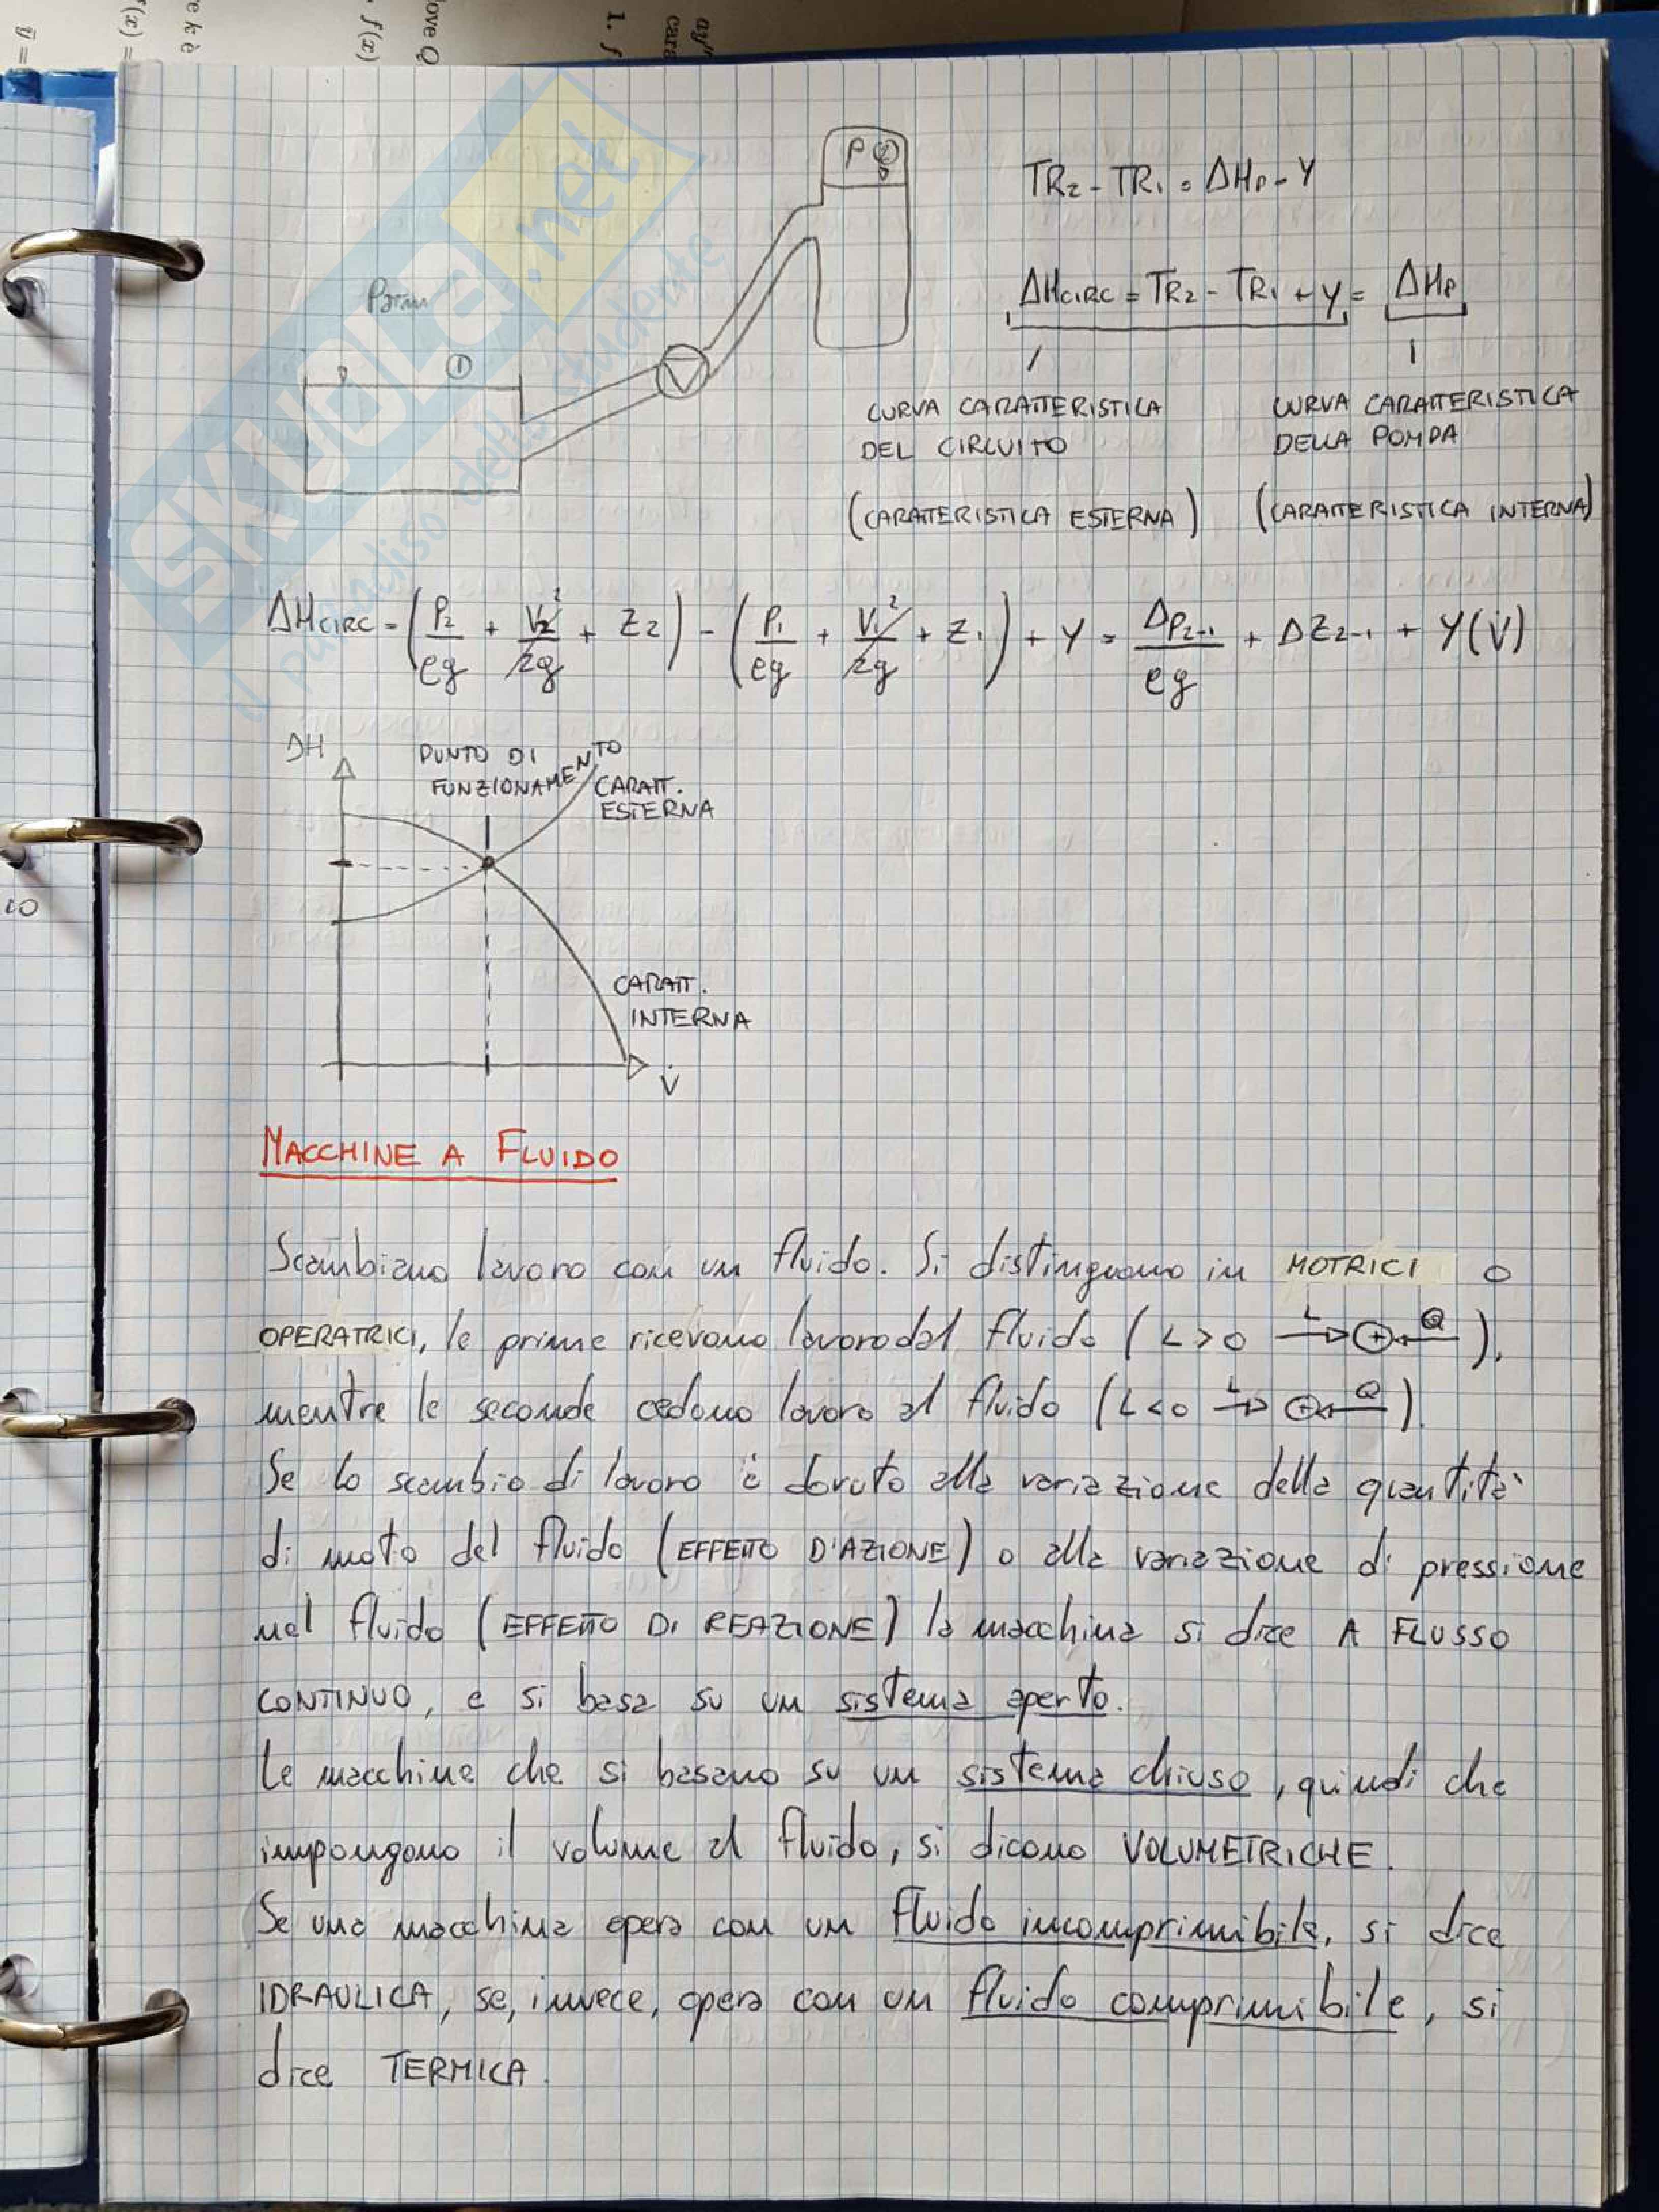 ay"
cara
1. f
love Q
f(x)
e k è
f(x) =
ȳ =
co
SKUOLA.net
il paradiso dello studente
P
②
TR₂ - TR₁ = ΔHp - Y
Patm
①
ΔHCIRC = TR₂ - TR₁ + Y = ΔHp
CURVA CARATTERISTICA
DEL CIRCUITO
(CARATTERISTICA ESTERNA)
CURVA CARATTERISTICA
DELLA POMPA
(CARATTERISTICA INTERNA)
ΔHCIRC = (P₂/ρg + V₂²/2g + Z₂) - (P₁/ρg + V₁²/2g + Z₁) + Y = ΔP₂₋₁/ρg + ΔZ₂₋₁ + Y(V̇)
ΔH
PUNTO DI
FUNZIONAMENTO
CARATT.
ESTERNA
CARATT.
INTERNA
V̇
MACCHINE A FLUIDO
Scambiano lavoro con un fluido. Si distinguono in MOTRICI o
OPERATRICI, le prime ricevono lavoro dal fluido (L>0 L→⊕←Q),
mentre le seconde cedono lavoro al fluido (L<0 L→⊕←Q).
Se lo scambio di lavoro è dovuto alla variazione della quantità
di moto del fluido (EFFETTO D'AZIONE) o alla variazione di pressione
nel fluido (EFFETTO DI REAZIONE) la macchina si dice A FLUSSO
CONTINUO, e si basa su un sistema aperto.
Le macchine che si basano su un sistema chiuso, quindi che
impongono il volume al fluido, si dicono VOLUMETRICHE.
Se una macchina opera con un fluido incomprimibile, si dice
IDRAULICA, se, invece, opera con un fluido comprimibile, si
dice TERMICA.